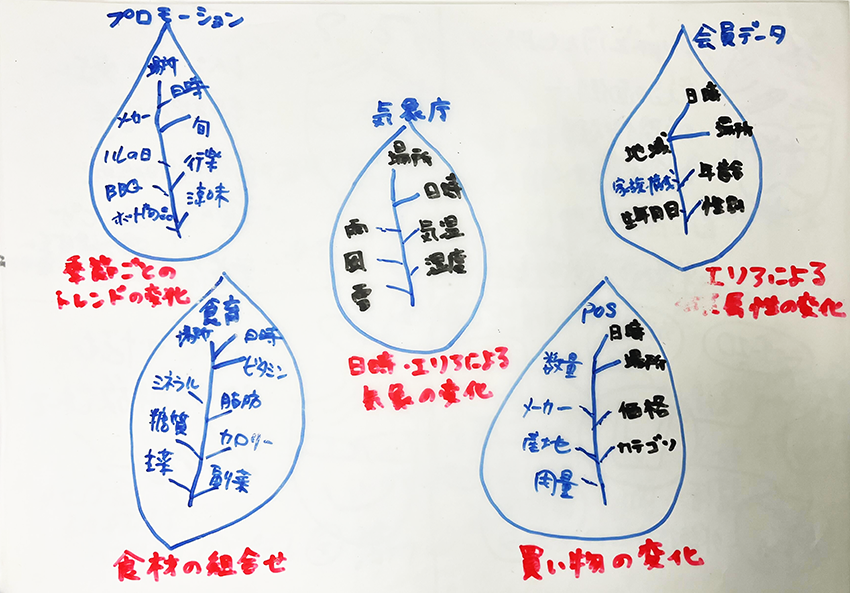 プロモーション
場所
日時
メーカー
旬
ハレの日
行楽
BBQ
涼味
季節ごとの
トレンドの変化
気象庁
場所
日時
雨
気温
風
湿度
雪
日時・エリアによる
気象の変化
会員データ
日時
場所
地域
年齢
家族構成
生年月日
性別
エリアによる
属性の変化
食育
場所
日時
ビタミン
ミネラル
脂肪
糖質
カロリー
主菜
副菜
食材の組合せ
POS
日時
数量
場所
メーカー
価格
産地
カテゴリ
用量
買い物の変化